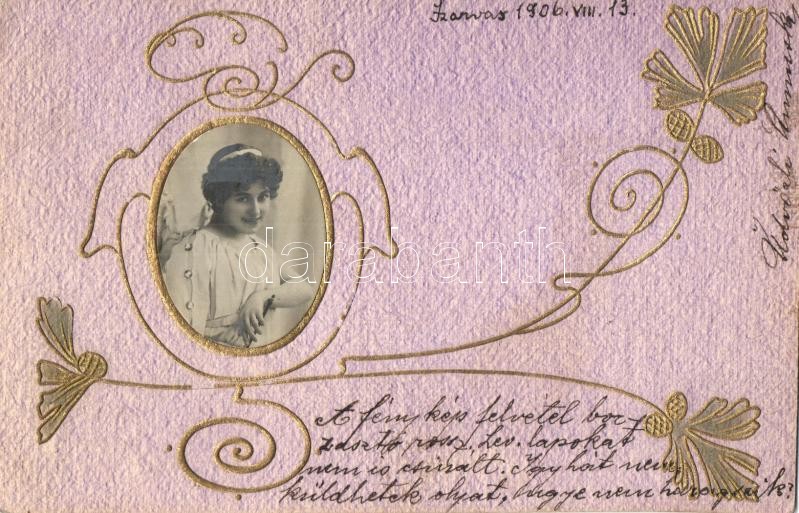 Szarvas 1906. VIII. 13.
A fénykép felvétel bor-
zasztó rossz, lev. lapokat
nem is csinált. Így hát nem
küldhetek olyat, ugye nem haragszik?
darabanth